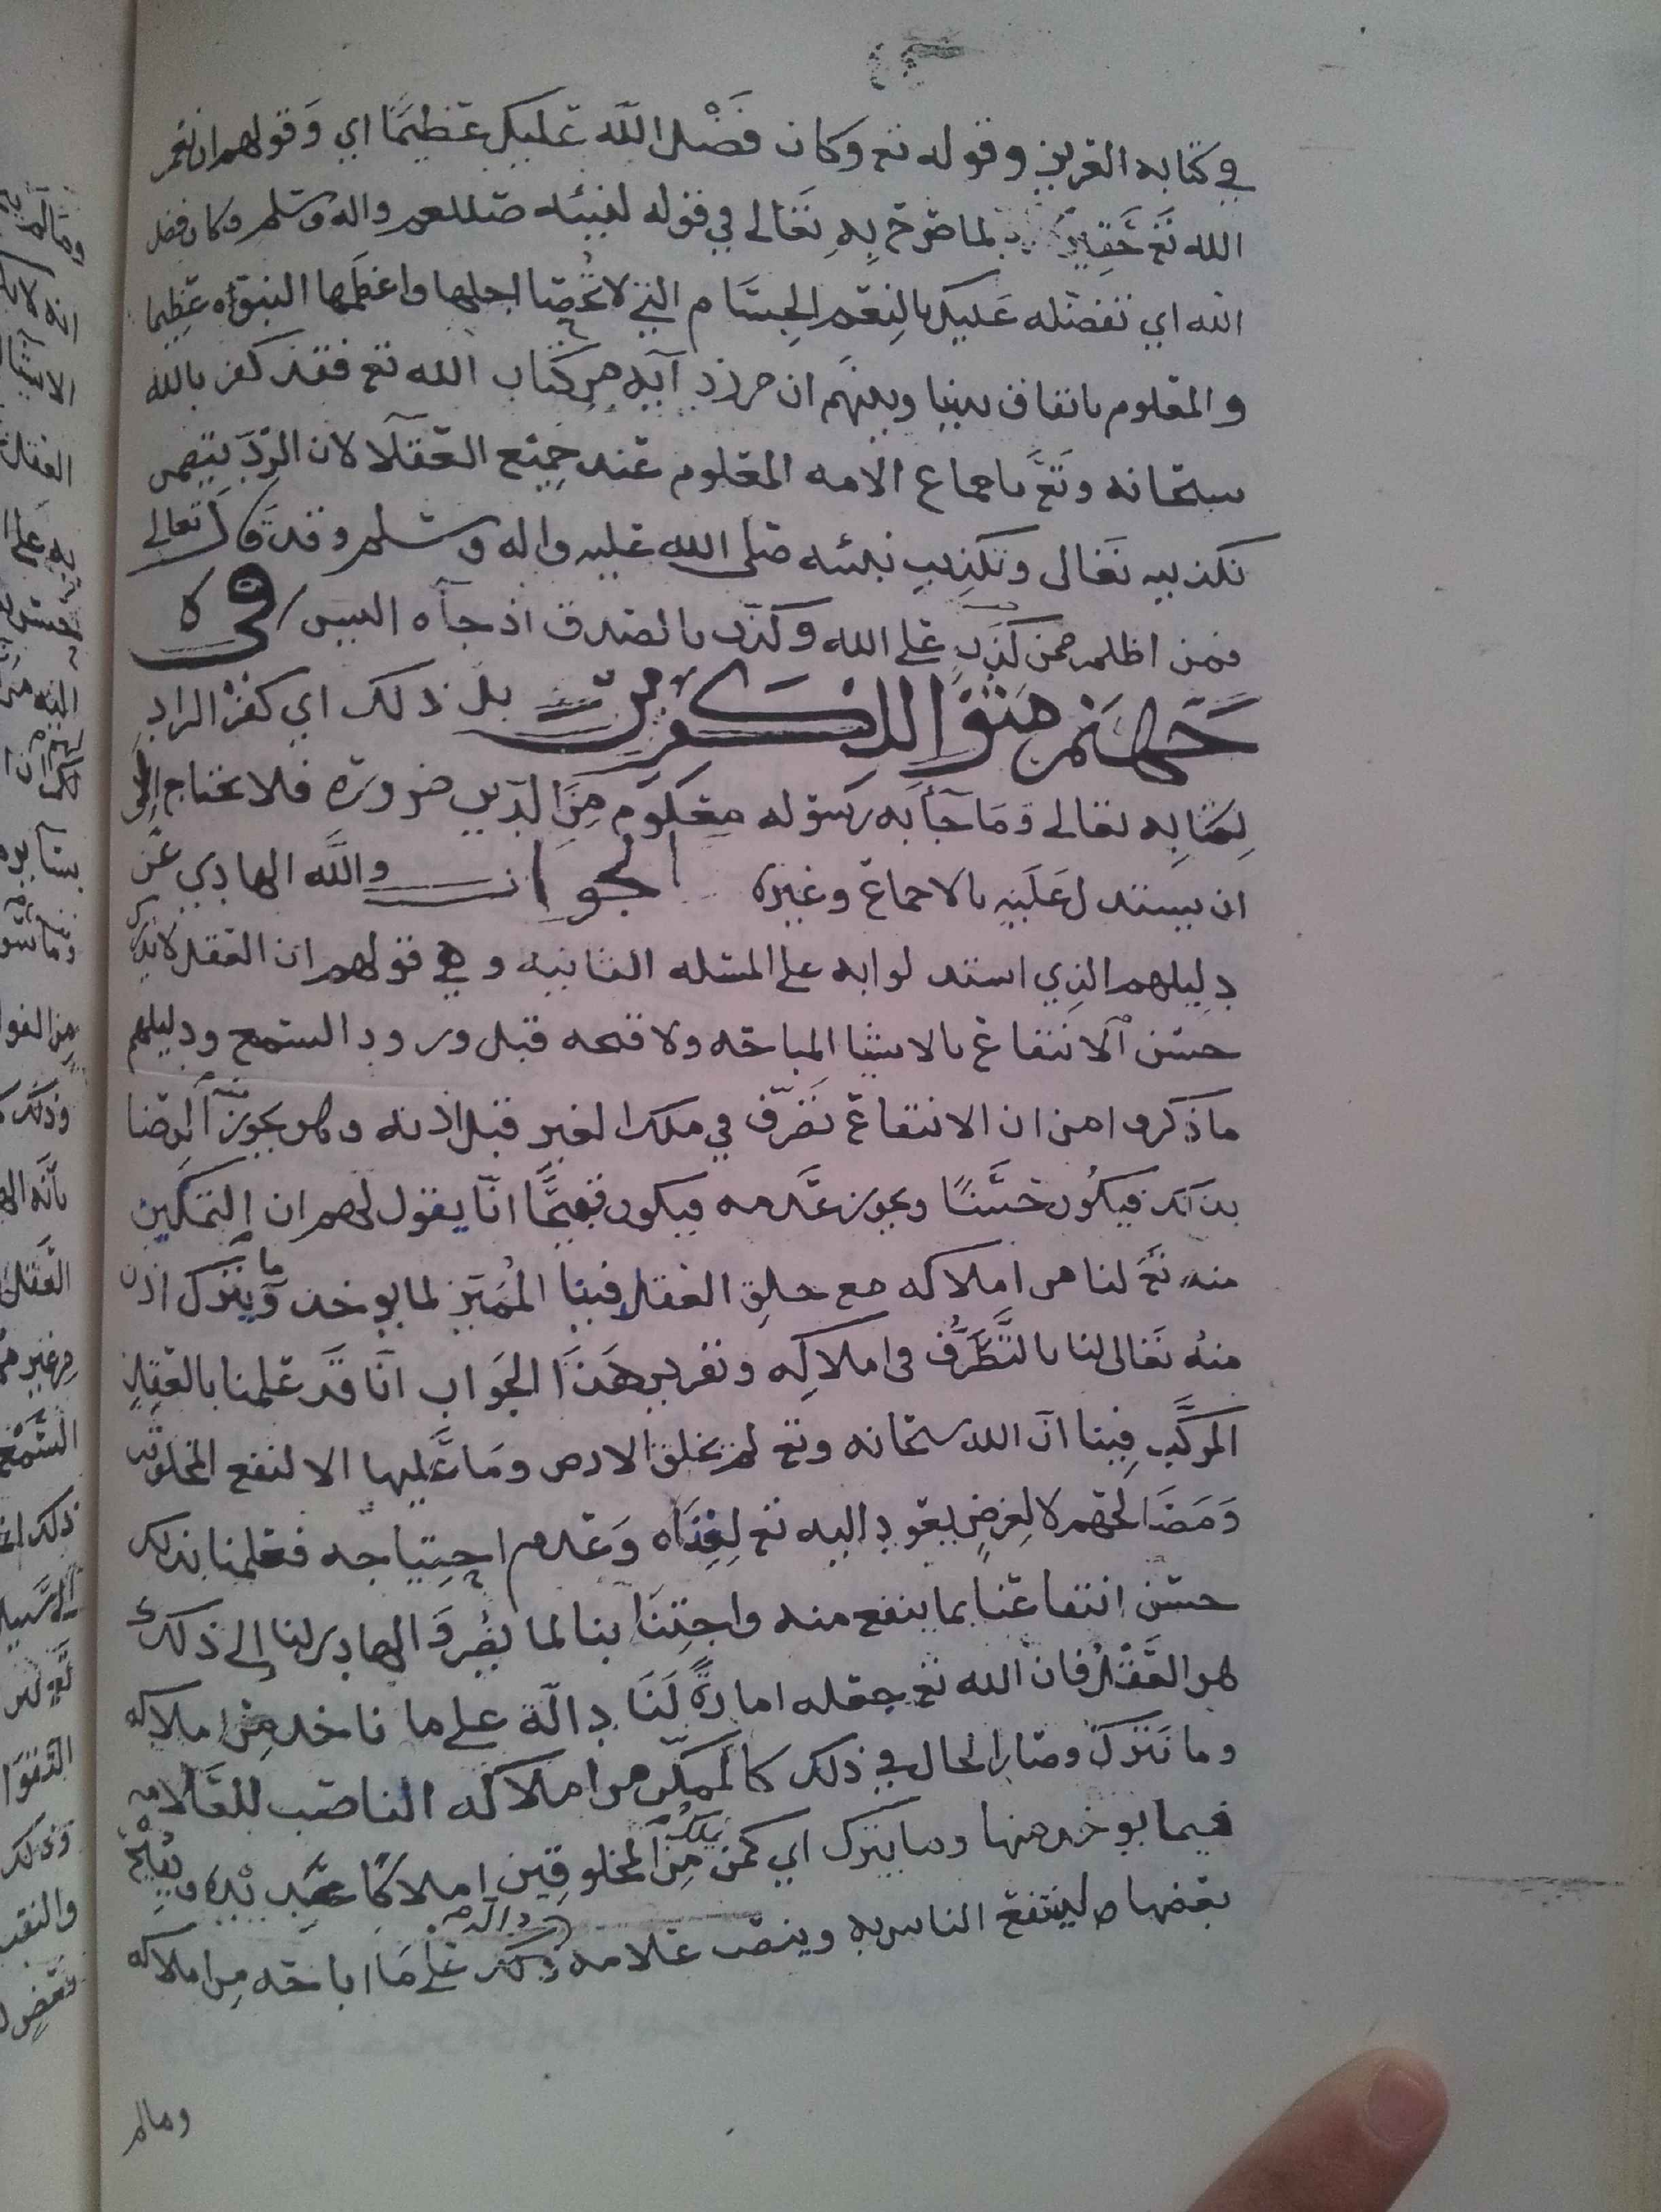 في كتابه العزيز وقوله تع وكان فَضْل الله عليك عظيمًا اي وَقولهم ان نعم
الله تع حَقِيرة لما صرح بِهِ تَعَالى في قوله لنبيئه صللعم واله وسلم وكان فضل
الله اي تفضله عَليك بالنِعَم الجِسَام التي لا تُحصا اجلها واعظمها النبوّه عظيما
والمعلوم باتفاق بيننا وبينهم ان من رد آيه مِن كتاب الله تع فقد كفر بالله
سبحانه وتع باجماع الامه المعلوم عند جميع العقلآ لان الردّ يتضمن
تكذيبه تعَالى وتكذيب نبيئه صلى الله عليه واله وسلم وقد قال تعالى
فمن اظلم ممن كَذَبَ على الله وكذّب بالصدق اذ جآه اليس في
جَهَنم مثوًا للكفرين بل ذلك اي كفر الراد
لِكتابِه تعالى وَمَا جآ بَه رَسوله مَعلوم مِنَ الدّين ضرورة فلا نحتاج الى
ان يستدل عَلَيهِ بالاجماع وغيره الجواب والله الهادي عَن
دليلهم الذي استدلوا به على المسئله الثانيه وهي قولهم ان العقل لا يدرك
حسْن الانتفاع بالاشيا المباحه ولا قبحه قبل ورود السّمع ودليلهم
ما ذكروا من ان الانتفاع تصَرّف في ملك الغير قبل اذنه وهو يجوز منه الرضا
بذلك فيكُون حَسَنًا ويجوز عَدمه فيكون قبيحًا انّا نقول لهم ان التمكين
منه تع لنا من املاكه مع خلق العقل فينا المُمَيّز لما يوخذ وما يترك اذن
منهُ تعَالى لنا بالتَّصَرُّف في املاكِه وتقرير هَذَا الجَوَاب انّا قد علمنا بالعقل
المركَّب فِينا انّ الله سبحانه وتع لم يخلق الارض وَمَا عَليها الا لنفع المخلوقين
وَمَصَالحهم لا لغِرَضٍ يعَود اليه تع لِغِنَاه وَعَدم احتياجه فعلمنا بذلك
حسْن انتفاعنا بما ينفع منه واجتِنَابنا لما يضر وَالهادي لنا الى ذلك
هو العَقْل فان الله تع جعَله امارةً لَنَا دالّة على ما ناخذ مِن املاكه
وما نَترك وصَار الحال في ذلك كالممكّن من املاكه الناصب للعَلامه
فيما يوخذ منها وما يترك اي كمن يملك مِنَ المخلوقِين املاكًا عِنْد يده ويُبيحُ
بعضها لينتفع الناس به وينصب علامه ذلك دالة عَلى مَا اباحَه مِن املاكه
ومالم